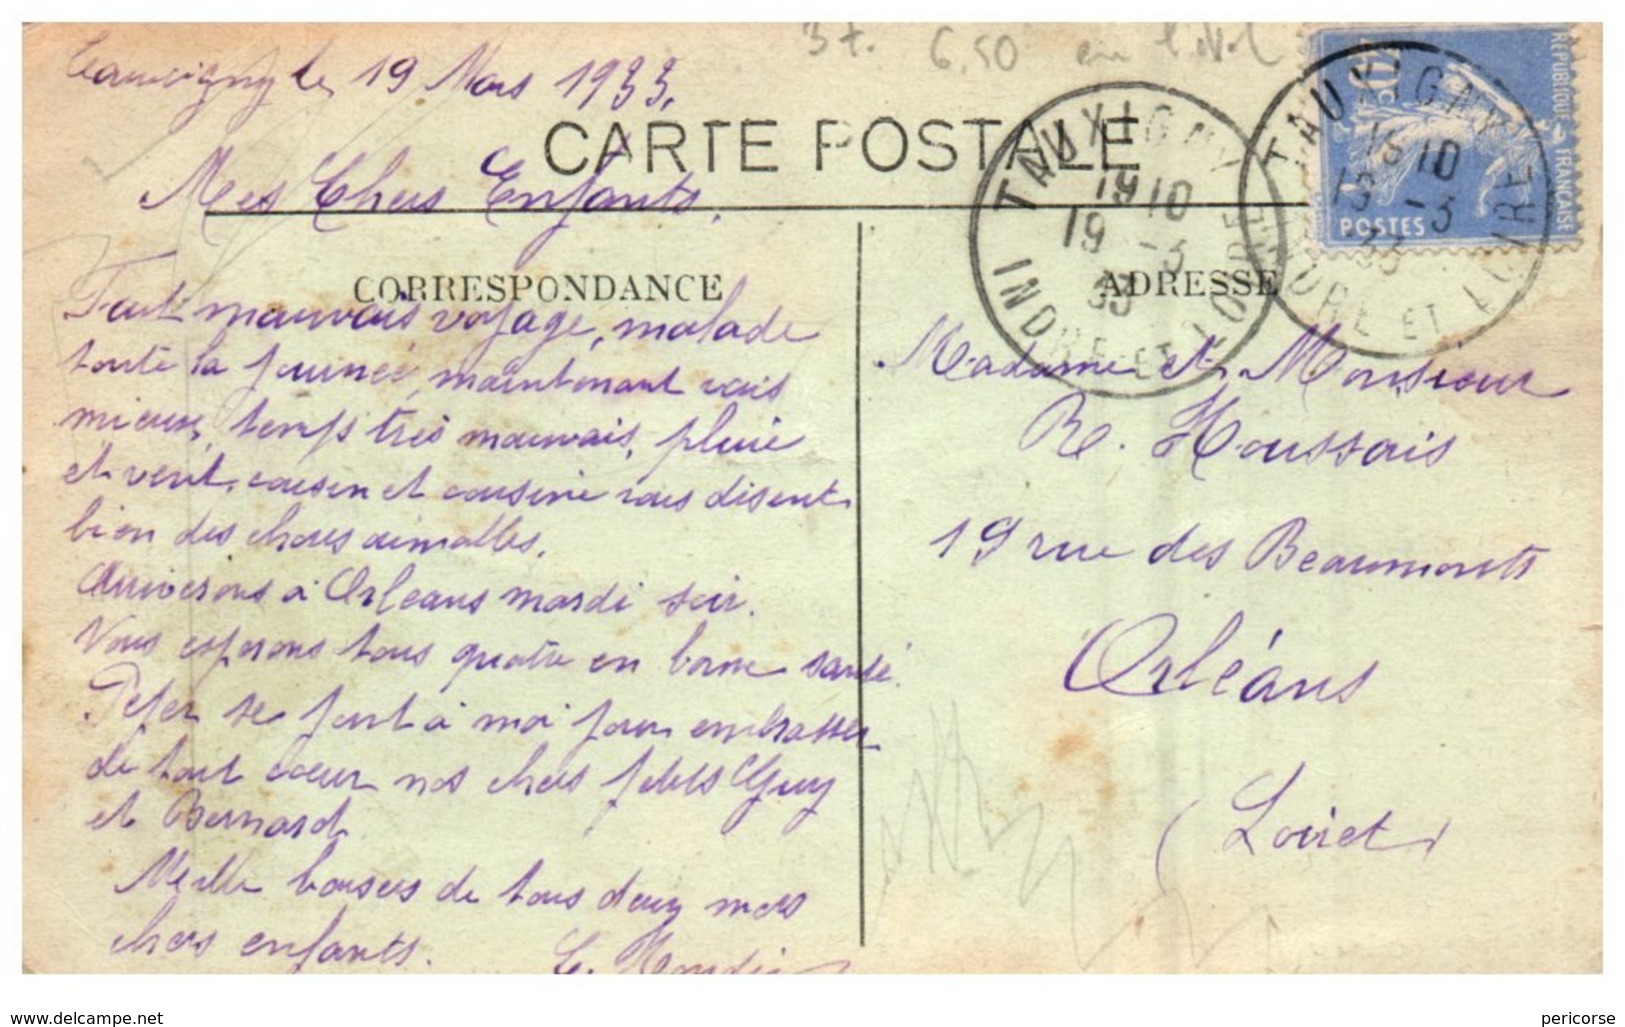 37. 6,50
Tauxigny le 19 Mars 1933.
CARTE POSTALE
Mes Chers Enfants,
CORRESPONDANCE
Fait mauvais voyage, malade
toute la journée, maintenant vais
mieux, temps très mauvais, pluie
et vent, cousin et cousine vous disent
bien des choses aimables.
Arriverons à Orléans mardi soir.
Vous esperons tous quatre en bonne santé.
se joint à moi pour embrasser
de tout coeur nos chers petits Guy
et Bernard.
Mille baisers de tous deux mes
chers enfants.
ADRESSE
Madame et Monsieur
R. Houssais
19 rue des Beaumonts
Orléans
(Loiret)
TAUXIGNY
19 10
19 -3
33
INDRE ET LOIRE
TAUXIGNY
10
-3
33
INDRE ET LOIRE
REPUBLIQUE FRANÇAISE
POSTES
www.delcampe.net
pericorse